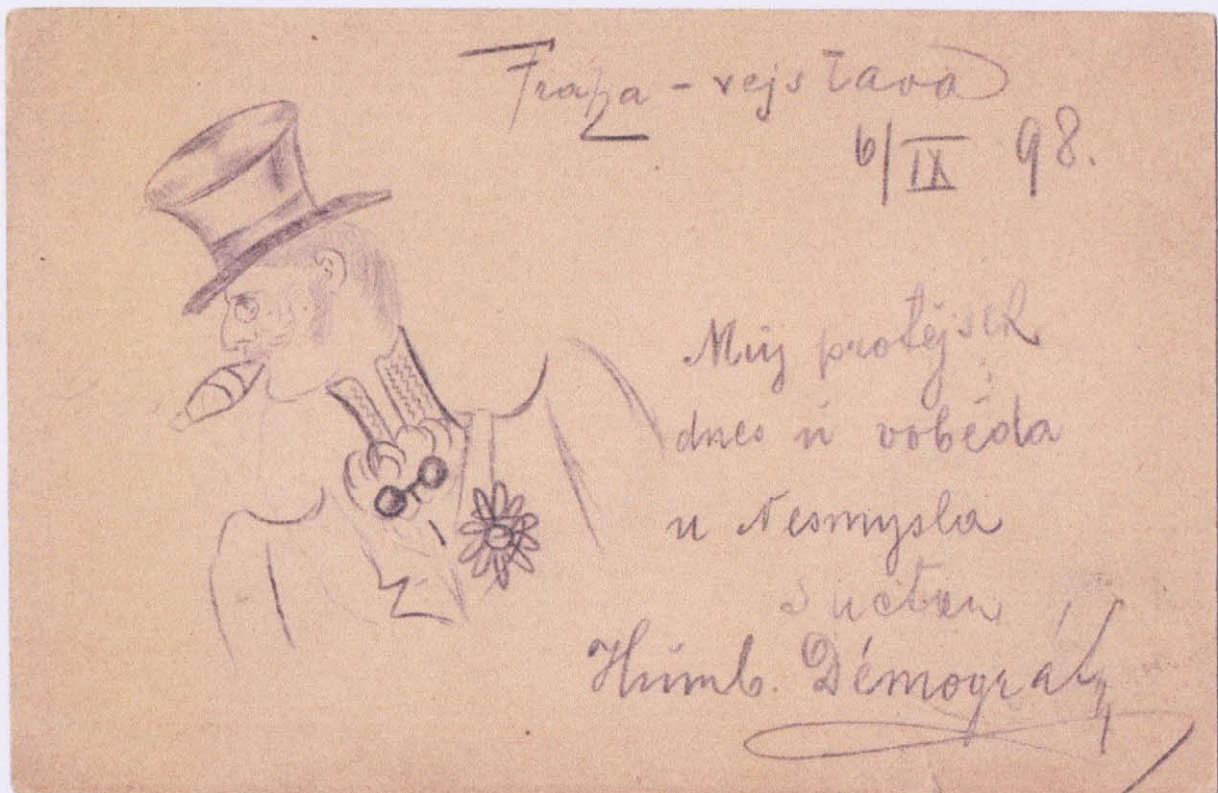 Fraha - vejstava
6/IX 98.
Můj protějsek
dnes ú vobéda
u Nesmysla
S úctou
Humb. Démográf